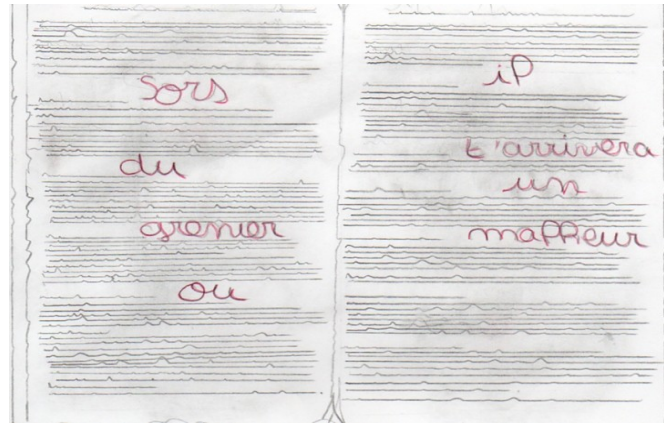 Sors
du
grenier
ou
il
t'arrivera
un
malheur